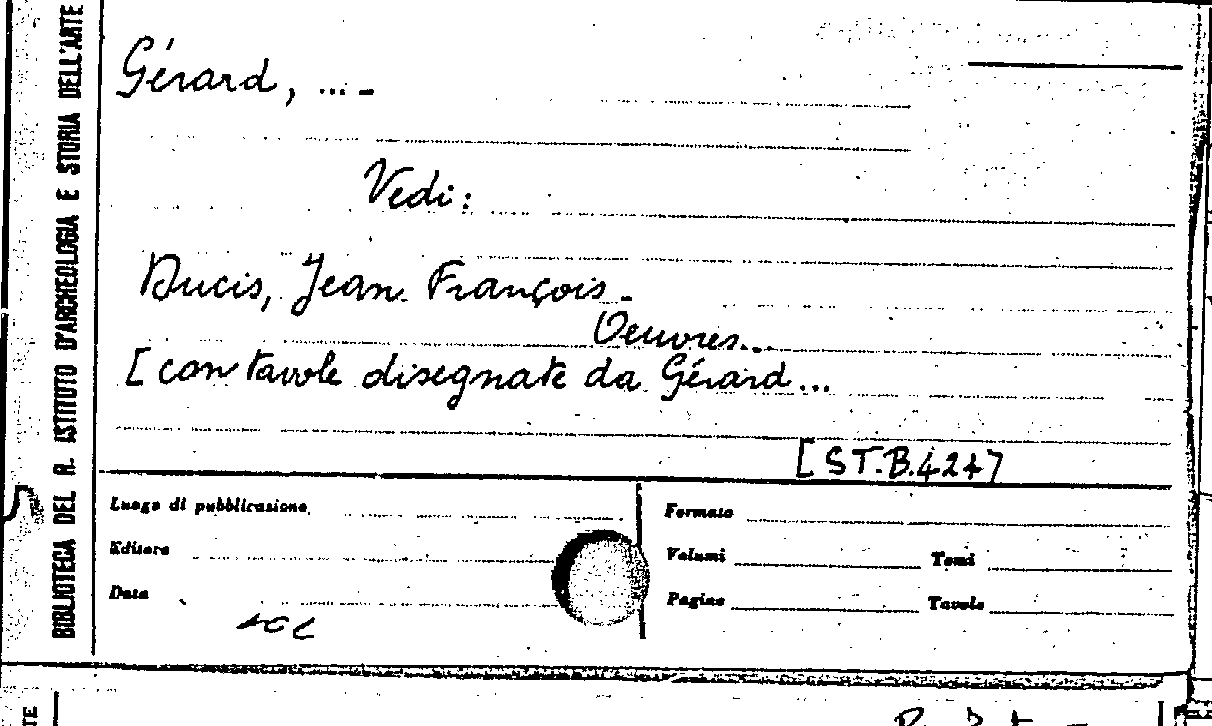 BIBLIOTECA DEL R. ISTITUTO D'ARCHEOLOGIA E STORIA DELL'ARTE
Gérard, ... -
Vedi:
Ducis, Jean François. -
Oeuvres...
[con tavole disegnate da Gérard...
[ST.B.424]
Luogo di pubblicazione
Editore
Data
Formato
Volumi
Tomi
Pagine
Tavole
TE